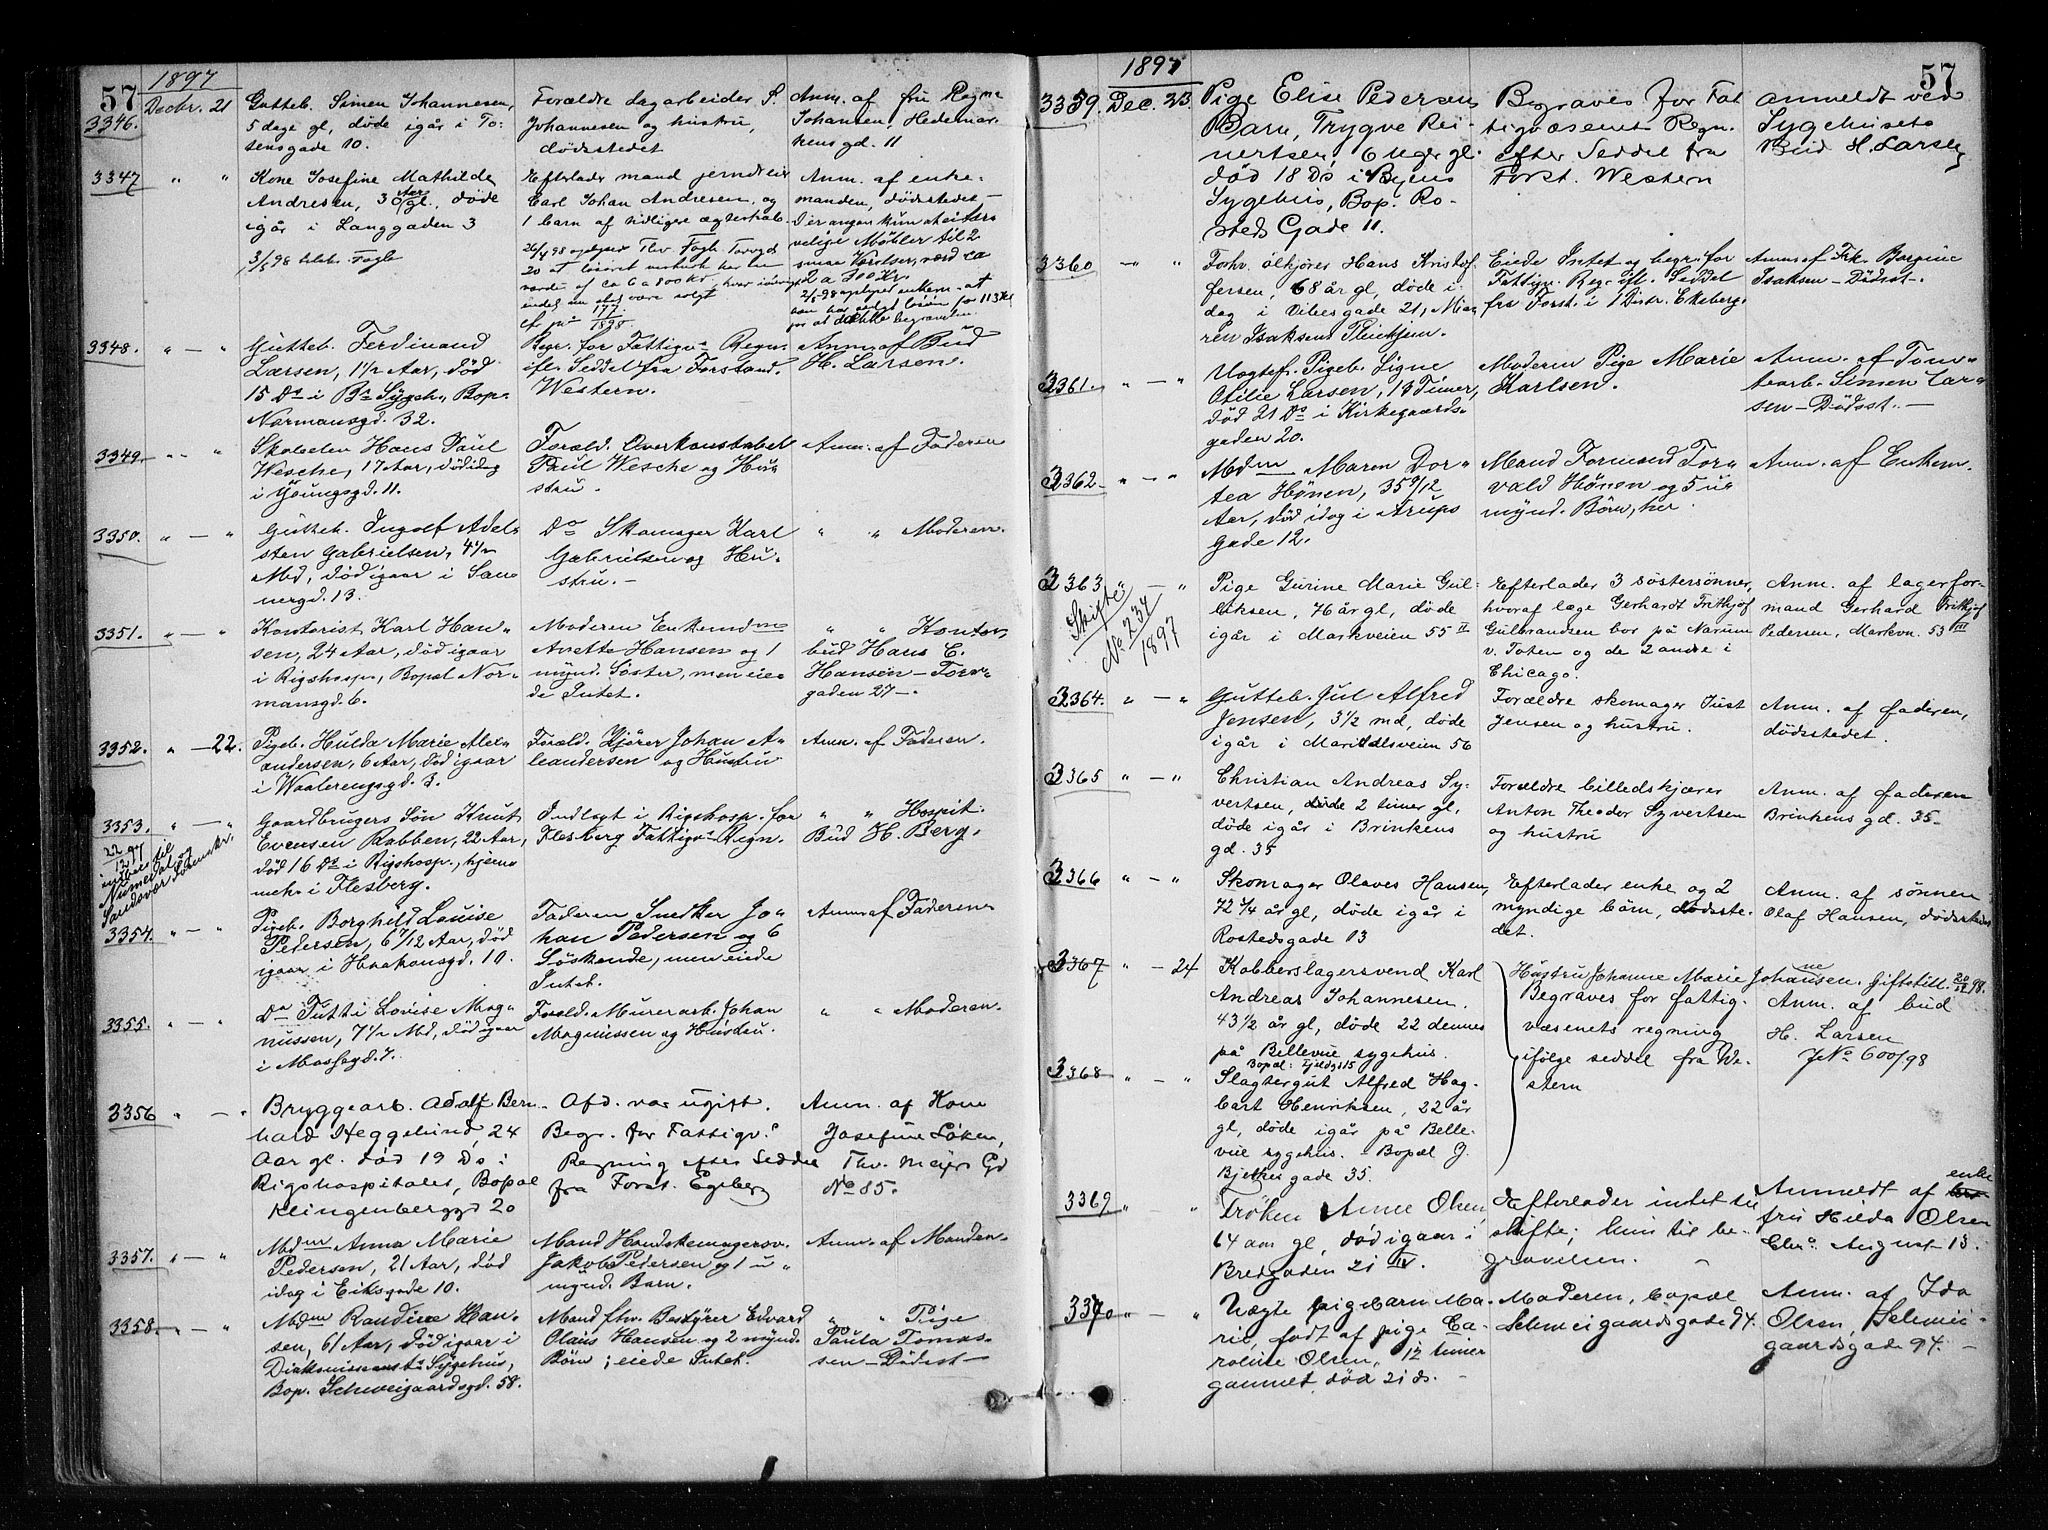 57
1897
3346.
Decbr. 21
Gutteb. Simen Johannesen,
5 dage gl, døde igår i To-
tensgade 10.
Forældre dagarbeider S.
Johannesen og hustru,
dødsstedet
Anm. af fru Regine
Johansen, Hedemar-
kensgd. 11
3347 " "
Kone Josefine Mathilde
Andresen, 30 Aar gl., døde
igår i Langgaden 3
Efterlader mand jerndreier
Carl Johan Andresen, og
1 barn af tidligere ægteskab.
Anm. af enke-
manden, dødsstedet
3348. " — "
Gutteb. Ferdinand
Larsen, 1½ Aar, død
15 Ds i Bs Sygeh., Bop.
Normansgd. 32.
Begr. for Fattigvs Regn.
ifl. Seddel fra Forstand.
Western.
Anm. af Bud
H. Larsen.
3349. " — "
Skoleelev Hans Paul
Wesche, 17 Aar, død idag
i Youngsgd. 11.
Foræld. Overkonstabel
Paul Wesche og Hu-
stru.
Anm. af Faderen
3350. " — "
Gutteb. Ingolf Adel-
sten Gabrielsen, 4½
Md, død igaar i San-
nergd. 13.
Do Skomager Karl
Gabrielsen og Hu-
stru. —
" " Moderen.
3351. " — "
Kontorist Karl Han-
sen, 24 Aar, død igaar
i Rigshosp., Bopæl Nor-
mansgd. 6.
Moderen Enkemdme
Anette Hansen og 1
mynd. Søster, men eie-
de Intet.
" " Kontor
bud Hans C.
Hansen — Torv-
gaden 27 —.
3352. " — 22.
Pigeb. Hulda Marie Alex-
andersen, 6 Aar, død igaar
i Waalerengsgd. 3.
Foræld. Kjører Johan A-
leandersen og Hustru
Anm. af Faderen.
3353. " — "
Gaardbrugers Søn Knut
Evensen Rabben, 22 Aar,
død 16 Ds i Rigshosp., hjem-
meh. i Flesberg.
Indlagt i Rigshosp. for
Flesberg Fattigvs Regn.
" " Hospit.
Bud H. Berg.
3354. " — "
Pigeb. Borghild Louise
Pedersen, 6 7/12 Aar, død
igaar i Haakonsgd. 10.
Faderen Snedker Jo-
han Pedersen og 6
Søskende, men eiede
Intet.
Anm. af Faderen
3355. " — "
Do Tutti Lovise Mag-
nussen, 7½ Md, død igaar
i Mossegd. 7.
Foræld. Murerarb. Johan
Magnussen og Hustru.
" " Moderen.
3356 " — "
Bryggearb. Adolf Bern-
hard Heggelund, 24
Aar gl. død 19 Ds i
Rigshospitalet, Bopæl
Klingenberggd 20
Afd. var ugift.
Begr. for Fattigvs
Regning efter Seddel
fra Forst. Egeberg
Anm. af Kone
Josefine Løken,
Thv. Meyers Gd
No 85.
3357. " — "
Mdme Anna Marie
Pedersen, 21 Aar, død
idag i Eiksgade 10.
Mand Handskemagersv.
Jakob Pedersen og 1 u-
mynd. Barn.
Anm. af Manden
3358. " — "
Mdme Randine Han-
sen, 61 Aar, død igaar i
Diakonissernes Sygehus,
Bop. Schweigaardsgd. 58.
Mand fhv. Bestyrer Edvard
Olaus Hansen og 2 mynd.
Børn; eiede Intet.
" " Pige
Paula Tomas-
sen — Dødsst —
57
1897
3359. Dec. 23.
Pige Elise Pedersens
Barn, Trygve Rei-
nertsen, 6 Uger gl.
død 18 Ds i Byens
Sygehus, Bop. Ro-
steds Gade 11.
Begraves for Fat
tigvæsenets Regn.
efter Seddel fra
Forst. Western
anmeldt ved
Sygehusets
Bud H. Larsen
3360 " — "
Forhv. ølkjører Hans Kristof-
fersen, 68 år gl, døde i-
dag i Vibesgade 21,
Eiede Intet og begr. for
Fattigv. Reg. ifl. Seddel
fra Forst. i 1 Distr. Ekeberg.
Anm. af Frk. Bergine
Isaksen — Dødsst —.
3361. " — "
Uægtef. Pigeb. Signe
Otilie Larsen, 13 Timer,
død 21 Ds i Kirkegaards-
gaden 20.
Moderen Pige Marie
Karlsen.
Anm. af Tom-
tearb. Simen Lar-
sen — Dødsst. —
3362. " — "
Mdme Maren Dor-
tea Hønen, 35 9/12
Aar, død idag i Arups
Gade 12.
Mand Formand Tor-
vald Hønen og 5 u-
mynd. Børn, her.
Anm. af Enkem.
3363 " — "
Skifte
No 234
1897
Pige Gurine Marie Gul-
liksen, 76 år gl, døde
igår i Markveien 55 II
Efterlader 3 søstersønner,
hvoraf læge Gerhardt Frithjof
Gulbrandsen bor på Narum
v. Toten og de 2 andre i
Chicago.
Anm. af lagerfor-
mand Gerhard Frithjof
Pedersen, Markvn. 53 III
3364. " — "
Gutteb. Jul Alfred
Jensen, 3½ md, døde
igår i Maridalsveien 56
Forældre skomager Just
Jensen og hustru.
Anm. af faderen,
dødsstedet.
3365 " — "
Christian Andreas Sy-
vertsen, døde 2 timer gl,
døde igår i Brinkens
gd. 35
Forældre billedskjærer
Anton Theodor Syvertsen
og hustru
Anm. af faderen
Brinkens gd. 35 —
3366 " — "
Skomager Olaves Hansen,
72 ¼ år gl, døde igår i
Rostedsgade 13
Efterlader enke og 2
myndige børn, dødsste-
det.
Anm. af sønnen
Olaf Hansen, dødsstedet
3367 " — 24
Kobberslagersvend Karl
Andreas Johannesen.
43½ år gl, døde 22 dennes
på Bellevue sygehus.
Bopæl: Fjeldgd 15
Hustru Johanne Marie Johansen. Giftstill. 20/12 98.
Begraves for fattig-
væsenets regning
ifølge seddel fra We-
stern
Anm. af bud
H. Larsen
J No 600/98
3368 " — "
Slagtergut Alfred Hag-
bart Henriksen, 22 år
gl, døde igår på Belle-
vue sygehus. — Bopæl J.
Bjelkes gade 35.
3369 " — "
Frøken Anne Olsen
64 aar gl, død igaar i
Bredgaden 21 IV.
Efterlader intet til
skifte; kun til be-
gravelsen.
Anmeldt af enke
fru Hilda Olsen
Chrs. August 13.
3370 " — "
Uægte pigebarn Ma-
rie, født af pige Ca-
roline Olsen, 12 timer
gammel, død 21 ds. —
Moderen, bopæl
Schweigaardsgade 94.
Anm. af Ida
Olsen, Schwei-
gaardsgade 94. —